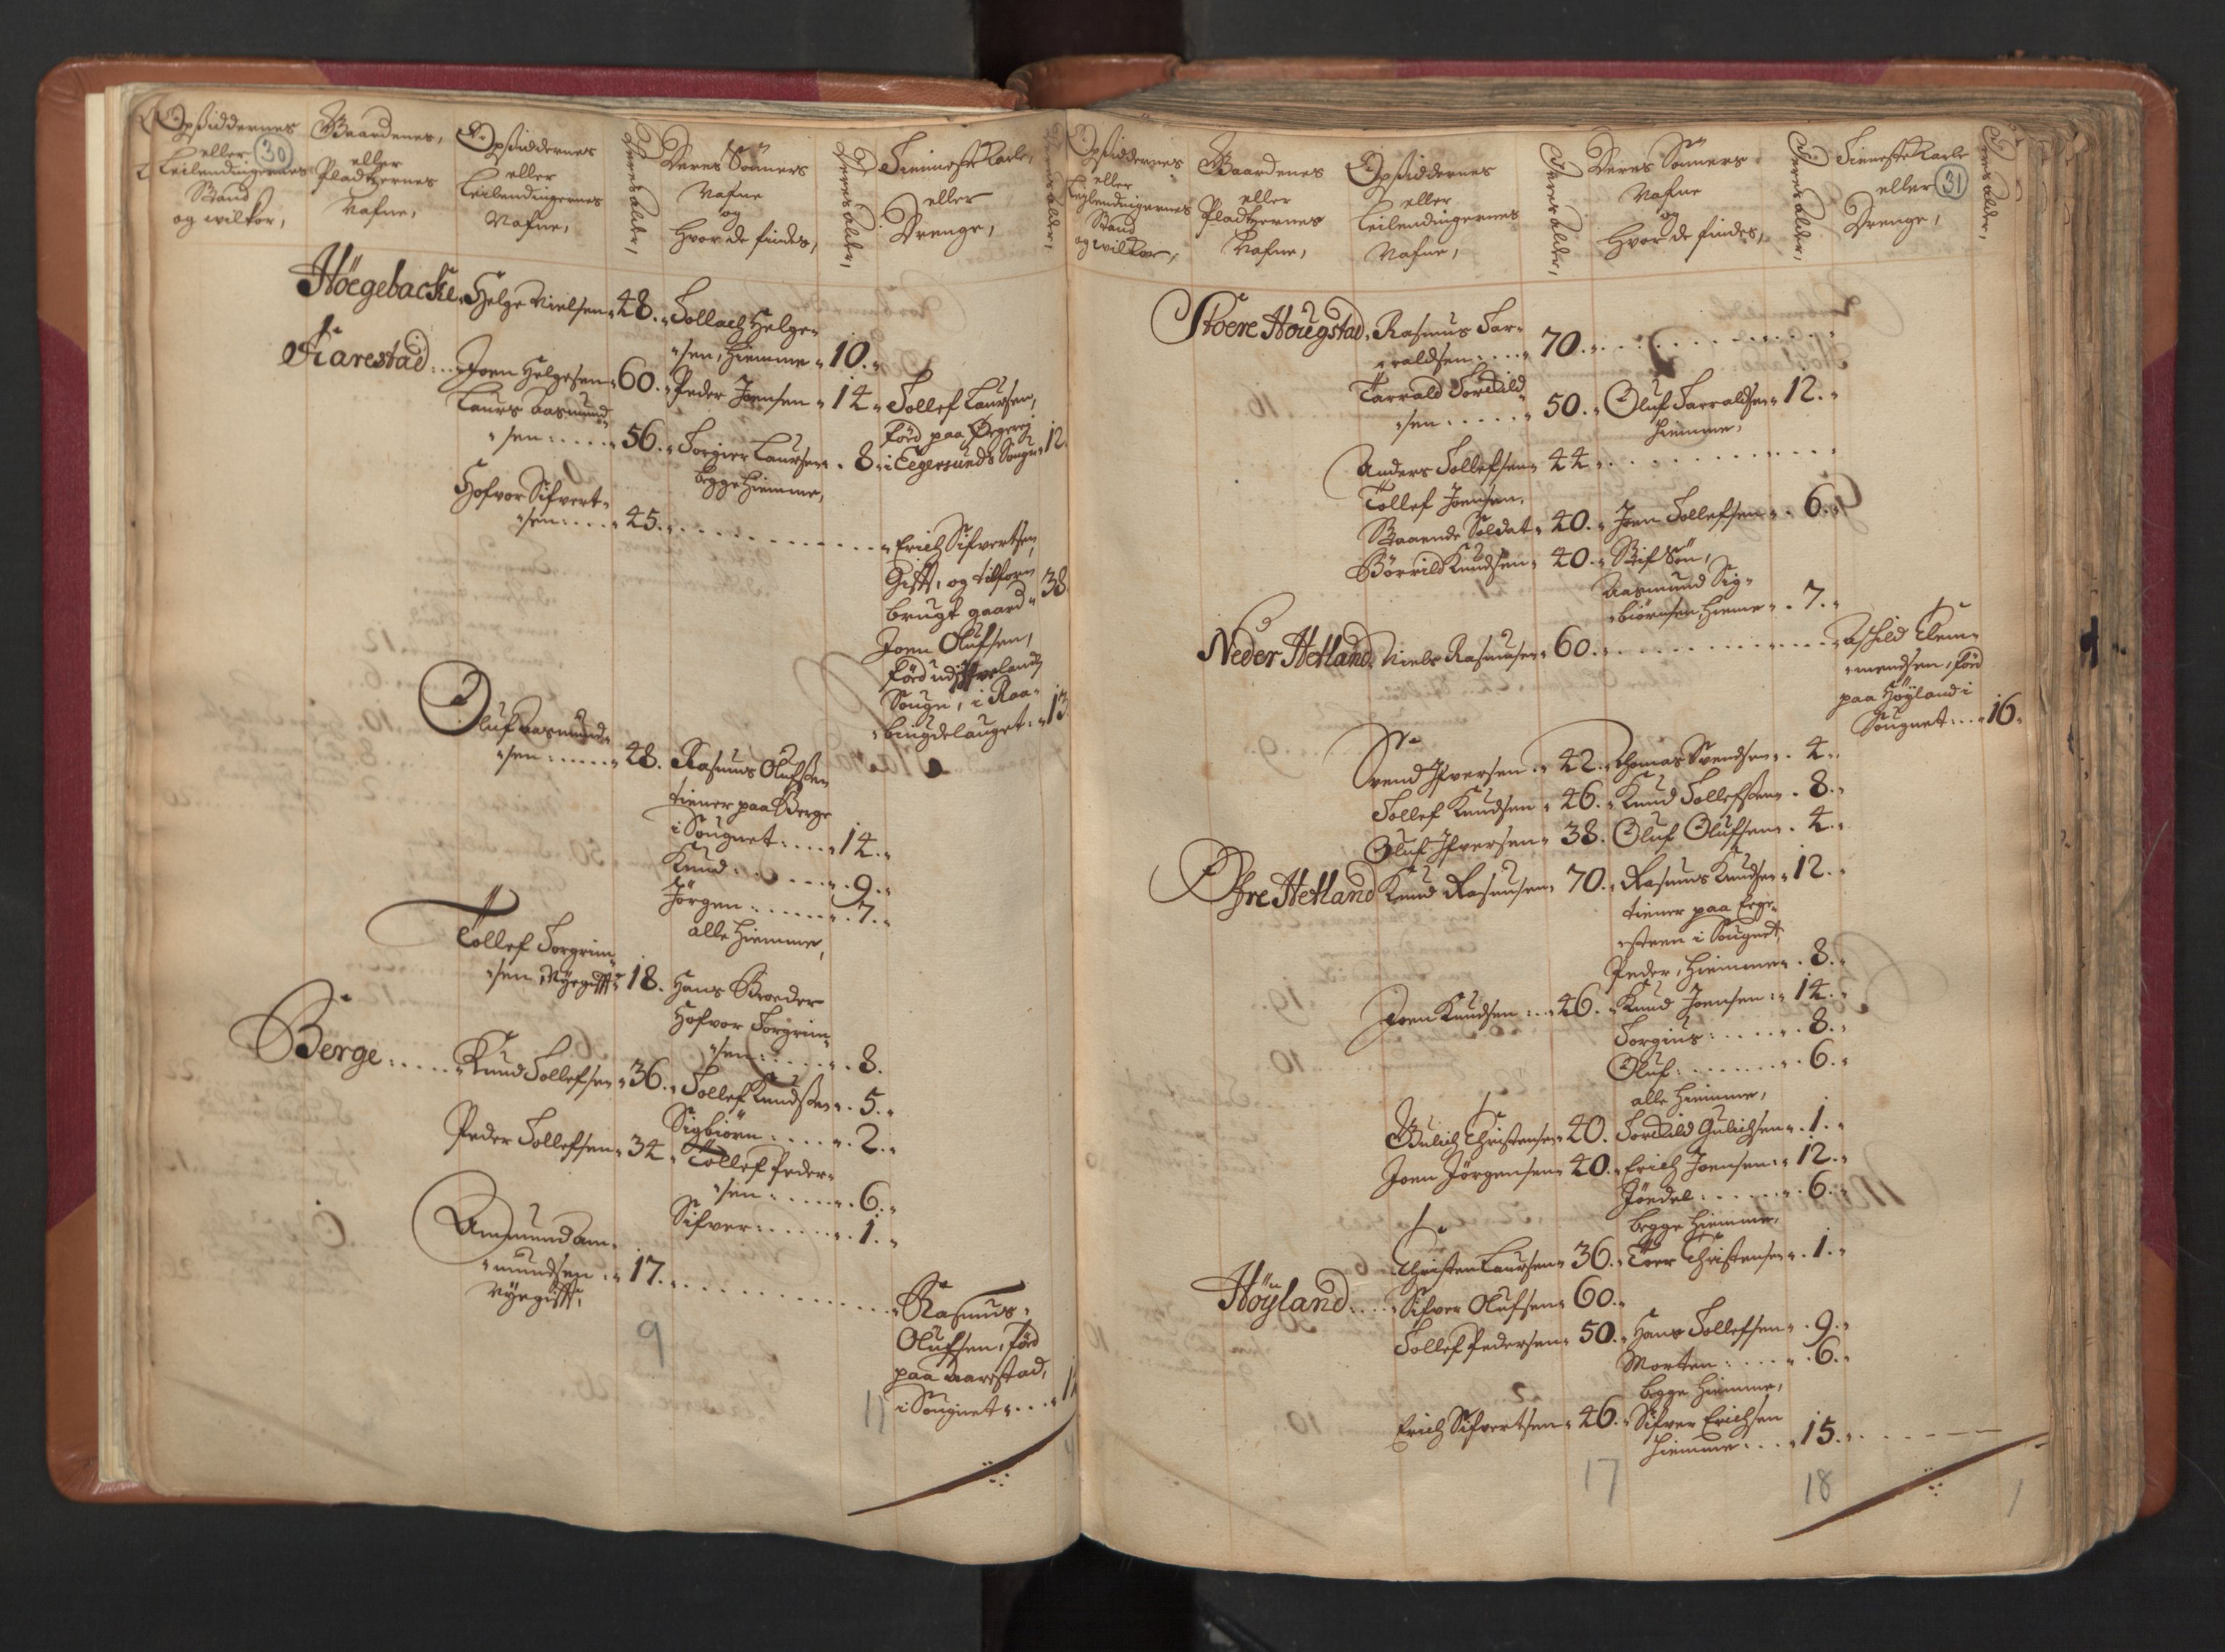 Opsiddernes
eller
Leilendingernes
Stand
og wilkor,
30
Gaardenes,
eller
Pladtzernes
Nafne,
Opsiddernes
eller
Leilendingernes
Nafne,
Deres alder,
Deres Sönners
Nafne
og
hvor de findes,
Deres alder,
Tienneste Karle,
eller
Drenge,
Deres alder,
Höegebacke Helge Nielsen 48. Tollach Helge-
sen, hiemme 10.
Karestad Joen Helgesen 60. Peder Joensen 14 Tollef Laursen,
Laurs Aasmund-
sen 56. Torgier Laursen 8. föed paa
i Eegersunds Sougn 12
begge hiemme,
Hofvor Sifvert-
sen 45. Erich Sifvertsen
Gift, og tilforn
brugt gaard 38
Joen Olufsen,
föed udj
Sougn, i Raa-
bingdelauget 13
Oluf Aasmund-
sen 48. Rasmus Olufsen
tiener paa Berge
i Sougnet 14.
Knud 9.
Jörgen 7.
alle hiemme,
Tollef Torgrim-
sen, Nÿegift 18. Hans Broeder
Hofvor Torgrim-
sen 8.
Berge Knud Tollefsen 36. Tollef Knudsen 5.
Sigbiörn 2.
Peder Tollefsen 34 Tollef Peder-
sen 6.
Sifver 1.
Ammund Am-
mundsen 17.
Nÿegift, Rasmus
Olufsen, föed
paa Aarestad,
i Sougnet
9
11
Opsiddernes
eller
Leylendingernes
Stand
og wilkor,
Gaardenes
eller
Pladtzernes
Nafne,
Opsiddernes
eller
Leilendingernes
Nafne,
Deres alder,
Deres Sönners
Nafne
og
hvor de findes,
Deres alder,
Tienneste Karle
eller
Drenge,
31
Deres alder,
Stoere Hougstad Rasmus Tar-
raldsen 70.
Tarrald Torkild-
sen 50. Oluf Tarraldsen 12.
hiemme,
Anders Tollefsen 44
Tollef Joensen,
Staaende Soldat 40. Joen Tollefsen 6.
Börrild Knudsen 40. Stif Sön,
Aasmund Sig-
biörnsen, hieme 7.
Neder Hetland Niels Rasmusen 60. Aschild Clem-
mendsen, föed
paa Höÿland i
Sougnet 16.
Svend Ifversen 42. Thomas Svendsen 4.
Tollef Knudsen 46. Knud Tollefsen 8.
Oluf Ifversen 38. Oluf Olufsen 4.
Öfre Hetland Knud Rasmusen 70. Rasmus Knudsen 12.
tiener paa Eege-
steen i Sougnet,
Peder, hiemme 8.
Joen Knudsen 46. Knud Joensen 14.
Torgius 8.
Oluf 6.
alle hiemme,
Gulich Christensen 40. Torkild Gulichsen 1.
Joen Jörgensen 40. Erich Joensen 12.
Jöedel 6.
begge hiemme,
Christen Laursen 36. Toer Christensen 1.
Höÿland Sifver Olufsen 60.
Tollef Pedersen 50. Hans Tollefsen 9.
Morten 6.
begge hiemme,
Erich Sifvertsen 46. Sifver Erichsen
hiemme 15.
17
18
1